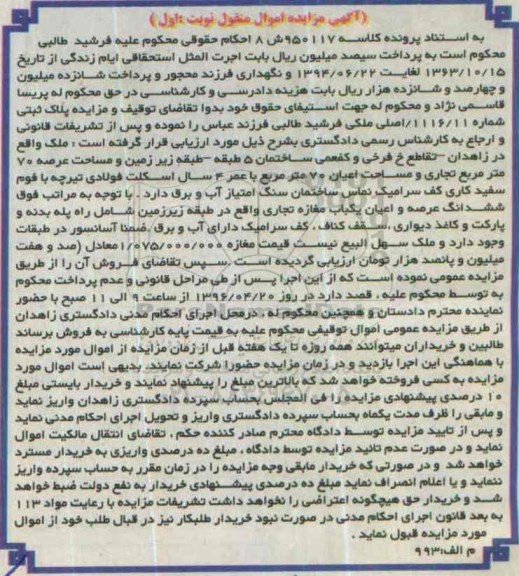 (آگهی مزایده اموال منقول نوبت اول)
به استناد پرونده کلاسه ۹۵۰۱۱۷ش ۸ احکام حقوقی محکوم علیه فرشید طالبی
محکوم است به پرداخت سیصد میلیون ریال بابت اجرت المثل استحقاقی ایام زندگی از تاریخ
۱۳۶۳/۱۰/۱۵ لغایت ۱۳۹۴/۰۶/۲۲ و نگهداری فرزند محجور و پرداخت شانزده میلیون
و چهارصد و شانزده هزار ریال بابت هزینه دادرسی و کارشناسی در حق محکوم له پریسا
قاسمی نژاد و محکوم له جهت استیفای حقوق خود بدوا تقاضای توقیف و مزایده پلاک ثبتی
شماره ۱۱۱۶/۱۱/اصلی ملکی فرشید طالبی فرزند عباس را نموده و پس از تشریفات قانونی
و ارجاع به کارشناس رسمی دادگستری بشرح ذیل مورد ارزیابی قرار گرفته است : ملک واقع
در زاهدان –تقاطع خ فرخی و کفعمی ساختمان ۵ طبقه –طبقه زیر زمین و مساحت عرصه ۷۰
متر مربع تجاری و مساحت اعیان ۷۰ متر مربع با عمر ۴ سال اسکلت فولادی تیرچه با فوم
سفید کاری کف سرامیک نماس ساختمان سنگ امتیاز آب و برق دارد . با توجه به مراتب فوق
ششدانگ عرصه و اعیان یکباب مغازه تجاری واقع در طبقه زیرزمین شامل راه پله بدنه و
پارکت و کاغذ دیواری ,سقف کناف , کف سرامیک دارای آب و برق , ضمنا آسانسور در طبقات
وجود دارد و ملک سهل البیع نیست قیمت مغازه ۱/۰۷۵/۰۰۰/۰۰۰معادل (صد و هفت
میلیون و پانصد هزار تومان ارزیابی گردیده است . سپس تقاضای فروش آن را از طریق
مزایده عمومی نموده است که از این اجرا پس از طی مراحل قانونی و عدم پرداخت محکوم
به توسط محکوم علیه , قصد دارد در روز ۱۳۹۶/۰۴/۲۰ از ساعت ۹ الی ۱۱ صبح با حضور
نماینده محترم دادستان و همچنین محکوم له , درمحل اجرای احکام مدنی دادگستری زاهدان
از طریق مزایده عمومی اموال توقیفی محکوم علیه به قیمت پایه کارشناسی به فروش برساند
طالبین و خریداران میتوانند همه روزه تا یک هفته قبل از زمان مزایده از اموال مورد مزایده
با هماهنگی این اجرا بازدید و در زمان مزایده حضورا شرکت نمایند. بدیهی است اموال مورد
مزایده به کسی فروخته خواهد شد که بالاترین مبلغ را پیشنهاد نمایند و خریدار بایستی مبلغ
۱۰ درصدی پیشنهادی مزایده را فی المجلس بحساب سپرده دادگستری زاهدان واریز نماید
و مابقی را ظرف مدت یکماه بحساب سپرده دادگستری واریز و تحویل اجرای احکام مدنی نماید
و پس از تایید مزایده توسط دادگاه محترم صادر کننده حکم , تقاضای انتقال مالکیت اموال
نماید و در صورت عدم تائید مزایده توسط دادگاه , مبلغ ده درصدی واریزی به خریدار مسترد
خواهد شد و در صورتی که خریدار مابقی وجه مزایده را در زمان مقرر به حساب سپرده واریز
ننماید و یا اعلام انصراف نماید مبلغ ده درصدی پیشنهادی خریدار به نفع دولت ضبط خواهد
شد و خریدار حق هیچگونه اعتراضی را نخواهد داشت تشریفات مزایده با رعایت مواد ۱۱۳
به بعد قانون اجرای احکام مدنی در صورت نبود خریدار طلبکار نیز در قبال طلب خود از اموال
مورد مزایده قبول نماید .
م الف:۹۹۳